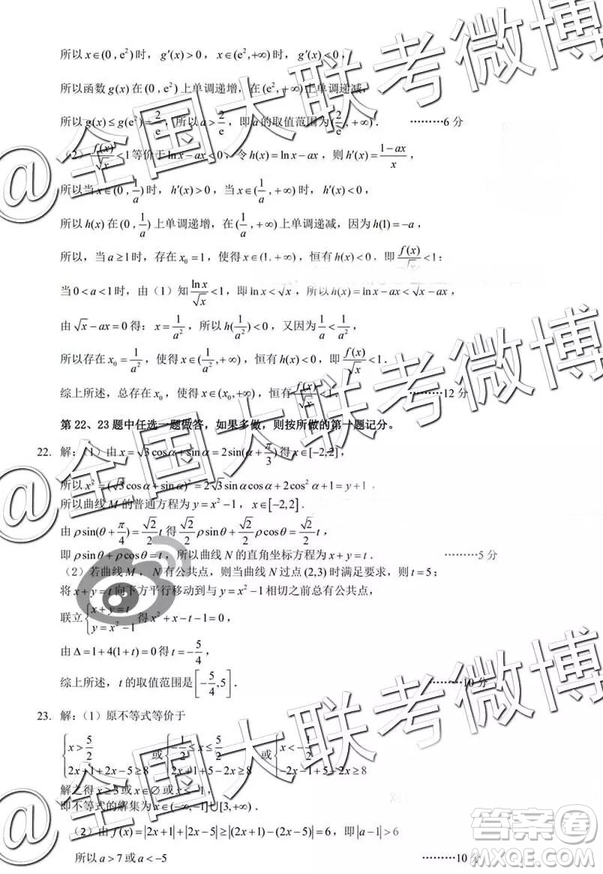 所以 x∈(0, e²) 时, g′(x)>0, x∈(e², +∞) 时, g′(x)<0,
所以函数 g(x) 在 (0, e²) 上单调递增, 在 (e², +∞) 上单调递减,
所以 g(x)≤g(e²)=2/e, 所以 a>2/e, 即 a 的取值范围为 (2/e, +∞). ………6 分
(2) f(x)/√x<1 等价于 ln x-ax<0, 令 h(x)=ln x-ax, 则 h′(x)=(1-ax)/x,
所以当 x∈(0, 1/a) 时, h′(x)>0, 当 x∈(1/a, +∞) 时, h′(x)<0,
所以 h(x) 在 (0, 1/a) 上单调递增, 在 (1/a, +∞) 上单调递减, 因为 h(1)=-a,
所以, 当 a≥1 时, 存在 x₀=1, 使得 x∈(1, +∞), 恒有 h(x)<0, 即 f(x)/√x<1;
当 0<a<1 时, 由 (1) 知 ln x/√x<1, 即 ln x<√x, 所以 h(x)<√x-ax,
由 √x-ax=0 得: x=1/a², 所以 h(1/a²)<0, 又因为 1/a²>1/a,
所以存在 x₀=1/a², 使得 x∈(1/a², +∞), 恒有 h(x)<0, 即 f(x)/√x<1.
综上所述, 总存在 x₀, 使得 x∈(x₀, +∞), 恒有 f(x)/√x<1. ………12 分
第 22、23 题中任选一题做答, 如果多做, 则按所做的第一题记分.
22. 解: (1) 由 x=√3cosα+sinα=2sin(α+π/3) 得 x∈[-2,2],
所以 x²=(√3cosα+sinα)²=2√3sinαcosα+2cos²α+1=y+1,
所以曲线 M 的普通方程为 y=x²-1, x∈[-2,2].
由 ρsin(θ+π/4)=√2/2 t 得 √2/2 ρsinθ+√2/2 ρcosθ=√2/2 t,
即 ρsinθ+ρcosθ=t, 所以曲线 N 的直角坐标方程为 x+y=t. ………5 分
(2) 若曲线 M, N 有公共点, 则当曲线 N 过点 (2,3) 时满足要求, 此时 t=5;
将 x+y=t 向下方平行移动到与 y=x²-1 相切之前总有公共点,
联立 {x+y=t, y=x²-1 得 x²+x-t-1=0,
由 Δ=1+4(1+t)=0 得 t=-5/4,
综上所述, t 的取值范围是 [-5/4, 5]. ………10 分
23. 解: (1) 原不等式等价于
{x>5/2, 2x+1+2x-5≥8 或 {-1/2≤x≤5/2, 2x+1-2x+5≥8 或 {x<-1/2, -2x-1-2x+5≥8
解之得 x≥3 或 x∈∅ 或 x≤-1,
即不等式的解集为 (-∞, -1]∪[3, +∞).
(2) 由 f(x)=|2x+1|+|2x-5|≥|(2x+1)-(2x-5)|=6, 即 |a-1|>6
所以 a>7 或 a<-5 ………10 分
@全国大联考微博
@全国大联考微博
@全国大联考微博
答案圈
MXQE.COM